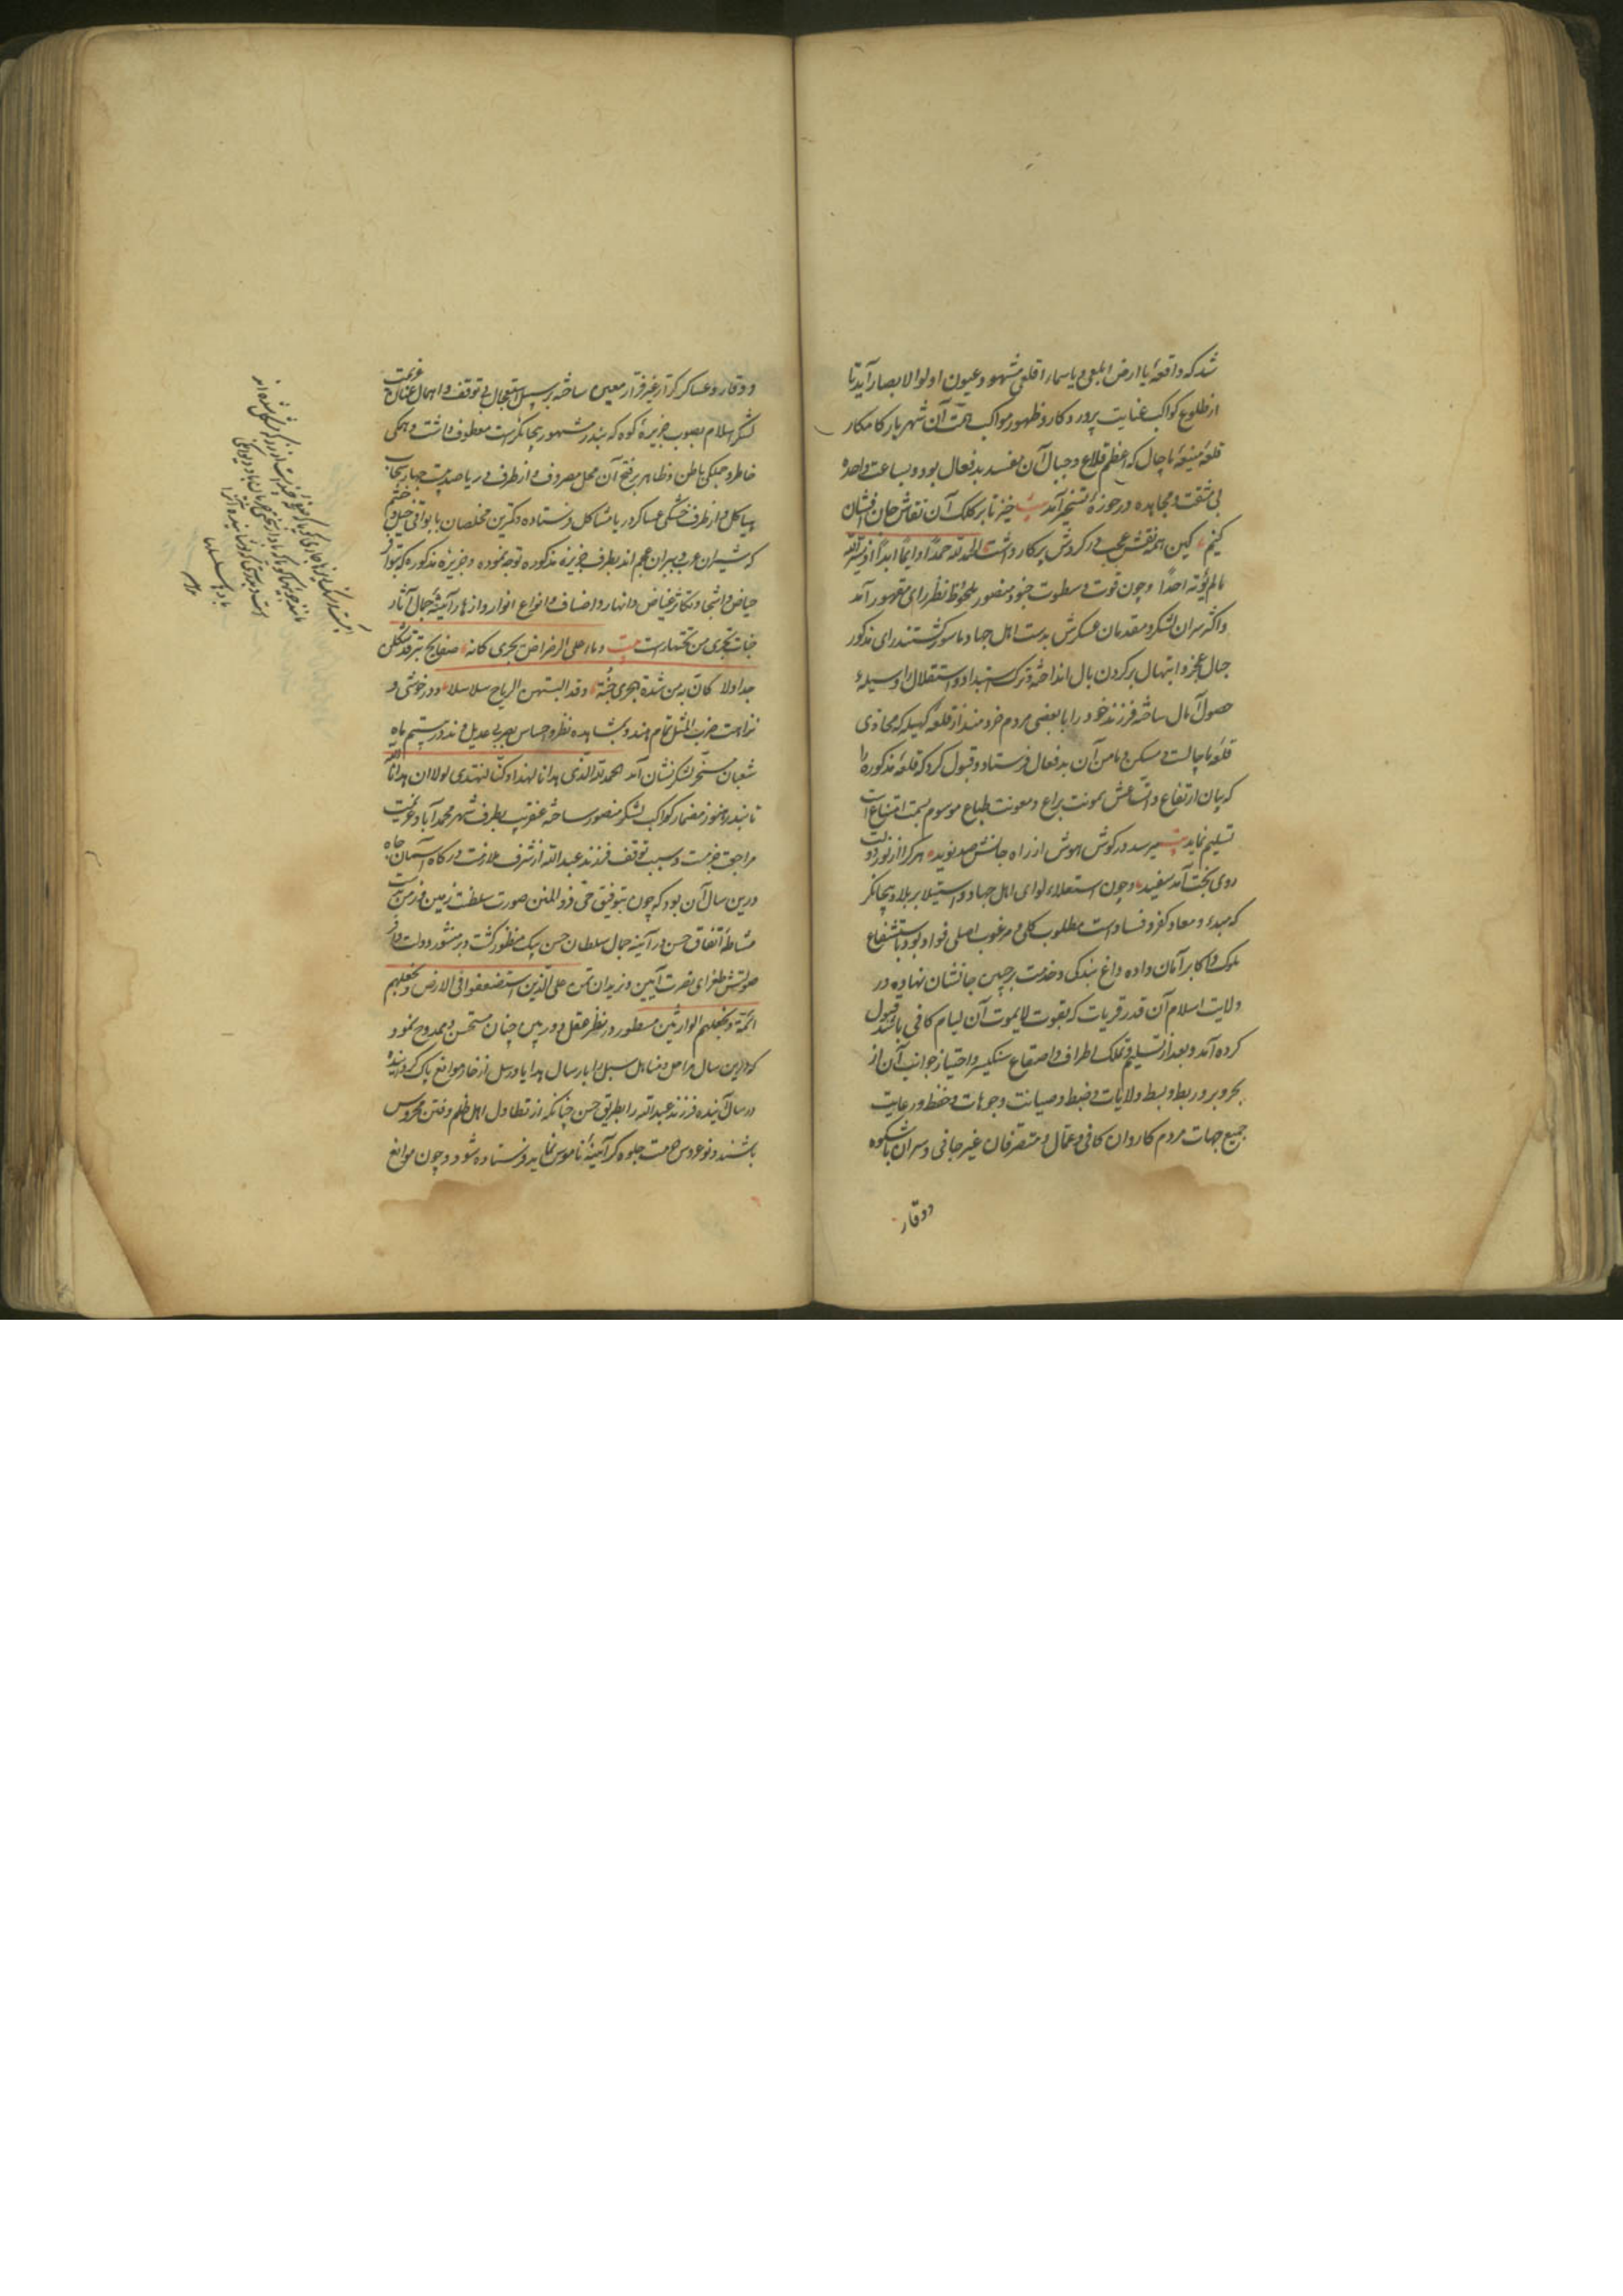 شد که واقعهٔ یا ارض ابلعی و یا سماء اقلعی مشهود عیون اولوالابصار آید تا
از طلوع کواکب عنایت پروردکار و ظهور مواکب همت آن شهریار کامکار
قلعهٔ منیعهٔ ماچال که اعظم قلاع و جبال آن مفسد بدفعال بود و بساعت واحده
بی مشقت و مجاهده در حوزهٔ تسخیر آمد بیت خیز تا بر کلک آن نقاش جان افشان
کنیم کین همه نقش عجب در کردش پرکار داشت الحمد لله حمدا دایما ابدا
مالم یؤته احدا و چون قوت و سطوت جنود منصور ملحوظ نظر رای مقهور آمد
و اکثر سران لشکر و مقدمان عسکرش بدست اهل جهاد ماسور کشتند رای مذکور
حبال عجز و ابتهال بر کردن بال انداخته و ترک استبداد و استقلال را وسیلهٔ
حصول آمال ساخته فرزند خود را با بعضی مردم خردمند از قلعه کهیله که محاذی
قلعهٔ ماچالست و مسکن و مامن آن بدفعال فرستاد و قبول کرد که قلعهٔ مذکوره را
که بیان ارتفاع و اتساعش بمونت یراع و معونت طباع موسوم بسمت امتناع است
تسلیم نماید بیت میرسد در کوش هوش از راه جانش صد نوید هر کرا از نور دولت
روی بخت آمد سفید و چون استعلاء لوای اهل جهاد و استیلا بر بلاد بیجانکر
که مبدء و معاد کفر و فسادست مطلوب کلی و مرغوب اصلی فواد بود باستشفاع
ملوک و اکابر آمان داده داغ بندکی و خدمت بر جبین جانشان نهاده در
ولایت اسلام آن قدر قریات که بقوت لایموت آن لیام کافی باشد قبول
کرده آمد و بعد از تسلیم و تملک اطراف و اصقاع سنکیسر و احتیاز جوانب آن از
بحر و بر و ربط و بسط ولایات و ضبط و صیانت وجوهات و حفظ و رعایت
جمیع جهات مردم کاردان کافی و عمال و متصرفان غیر جانی و سران باشکوه
و وقار
و وقار و عساکر کرار غیر فرار معین ساخته بر سبیل استعجال بی توقف و اهمال عنان عزیمت
لشکر اسلام بصوب جزیرهٔ کوه که بندر مشهور بیجانکرست معطوف داشت و همکی
خاطر و جملکی باطن و ظاهر بر فتح آن محل مصروف و از طرف دریا صد و بیست جهاز سحاب
هیاکل و از طرف خشکی عساکر دریا مشاکل فرستاده و کمترین مخلصان با بواقی خیل و حشم
که شیران عرب و ببران عجم اند بطرف جزیرهٔ مذکوره توجه نموده و جزیرهٔ مذکوره که بتواتر
حیاض و اشجار و تکاثر غیاض و انهار و اصناف و انواع انوار و ازهار آیینهٔ جمال آثار
جنات تجری من تحتها است بیت و ماء علی الرضراض یجری کانه صفایح تبر قد سبکن
جداولا کأن به من شدة الجری جنة و قد البستهن الریاح سلاسلا و در خوشی و
نزاهت ضرب المثل تمام هند و بمشاهده نظر و احساس بصر بی عدیل و ند در بیستم ماه
شعبان مسخر لشکر نشان آمد الحمد لله الذی هدانا لهذا و ما کنا لنهتدی لولا ان هدانا الله
مراجعت جزمست و سبب توقف فرزند عبدالله از شرف ملازمت درکاه آسمان جاه
درین سال آن بود که چون بتوفیق حی ذو المنن صورت سلطنت زمین و زمن بدست
مشاطهٔ اتفاق حسن در آیینه جمال سلطان حسن بیک منظور کشت و بر منشور دولت وافر
صولتش طغرای نصرت آیین و نرید ان نمن علی الذین استضعفوا فی الارض و نجعلهم
ائمة و نجعلهم الوارثین مسطور در نظر عقل دوربین چنان مستحسن و ممدوح نمود
که درین سال مراحل و مناهل سبل را بارسال هدایا و رسل از خار موانع پاک کردانیده
در سال آینده فرزند عبدالله را بطریق احسن چنانکه از تطاول اهل ظلم و فتن محروس
باشند و نوعروس همت جلوه کر آیینهٔ ناموس نماید فرستاده شود و چون موانع